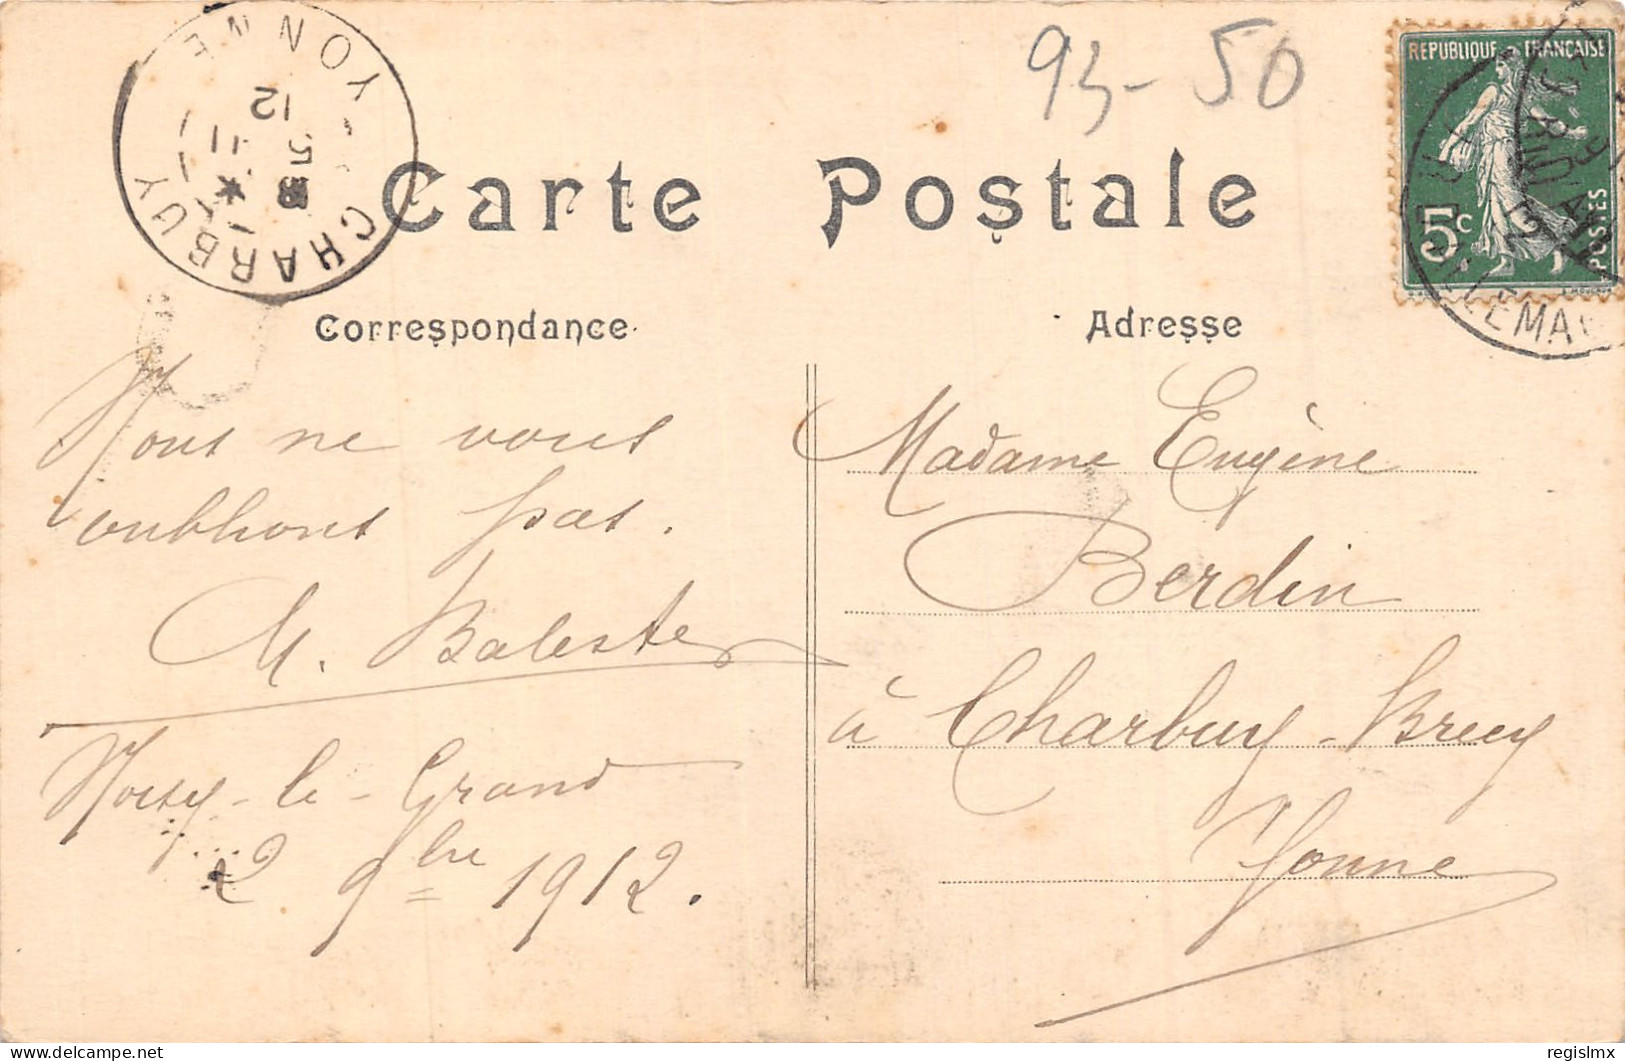 93-50
REPUBLIQUE FRANÇAISE
5c
POSTES
CHARBUY
YONNE
5
11
12
Carte Postale
Correspondance
Adresse
Nous ne vous
oublions pas.
M. Balester
Noisy-le-Grand
2 9bre 1912.
Madame Eugène
Berdin
à Charbuy-Brecy
Yonne
delcampe.net
regislmx